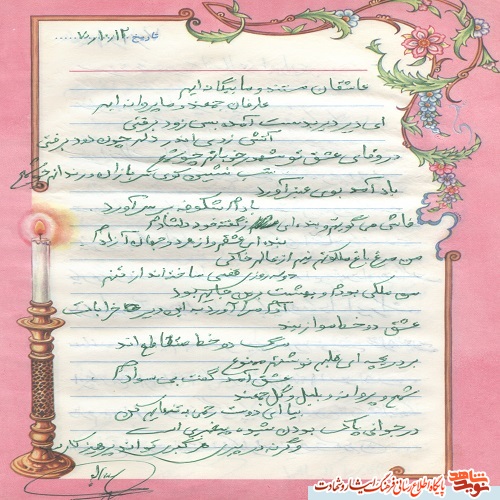 تاریخ ۷۰/۱۰/۱۲
عاشقان مستند و ما بیگانه ایم
عارفان جمعند و ما پروانه ایم
ای دیر بدست آمده بس زود برفتی
آتش زدی اندر دلم چون دود برفتی
در وفای عشق تو مشهور خوبانم چو شمع
شب نشین کوی سربازان و رندانم چو شمع
باد آمد بوی عنبر آورد
بادام شکوفه بر سر آورد
فاش می گویم و از گفته خود دلشادم
بنده عشقم و از هر دو جهان آزادم
من مرغ باغ ملکوتم نیم از عالم خاکی
چند روزی قفسی ساخته اند از بدنم
من ملک بودم و بهشت برین جایم بود
آدم آورد به این دیر خراباتم
عشق دو خط موازیند
مرگ دو خط متقاطع اند
بر دریچه ای قلبم نوشتم ممنوع
عشق آمد گفت بی سوادم
شمع و پروانه و بلبل و گل جمعند
بیا ای دوست رحمی به تنهایی کن
در جوانی پاک بودن شیوه پیغمبری است
وگرنه در پیری هر گبری تواند پرهیزکار
نوید شاهد
پایگاه اطلاع رسانی فرهنگ ایثار و شهادت